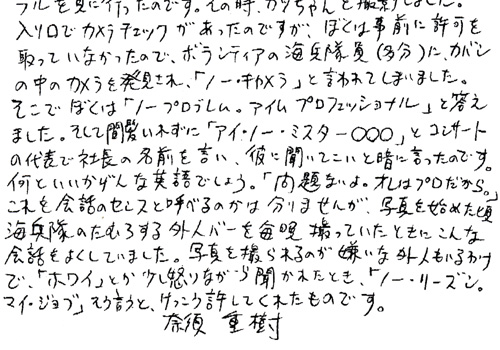 フルを見に行ったのです。その時、カツちゃんを撮影しました。
入り口でカメラチェックがあったのですが、ぼくは事前に許可を
取っていなかったので、ボランティアの海兵隊員(多分)に、カバン
の中のカメラを発見され、「ノー・キャメラ」と言われてしまいました。
そこでぼくは「ノープロブレム。アイム プロフェッショナル」と答え
ました。そして間髪いれずに「アイ・ノー・ミスター○○○」とコンサート
の代表で社長の名前を言い、彼に聞いてこいと暗に言ったのです。
何といいかげんな英語でしょう。「問題ないよ。オレはプロだから。」
これを会話のセンスと呼べるのかは分りませんが、写真を始めた頃
海兵隊のたむろする外人バーを毎晩撮っていたときにこんな
会話をよくしていました。写真を撮られるのが嫌いな外人もいるわけ
で、「ホワイ」とか少し怒りながら聞かれたとき、「ノー・リーズン。
マイ・ジョブ」そう言うと、けっこう許してくれたものです。
奈須 重樹